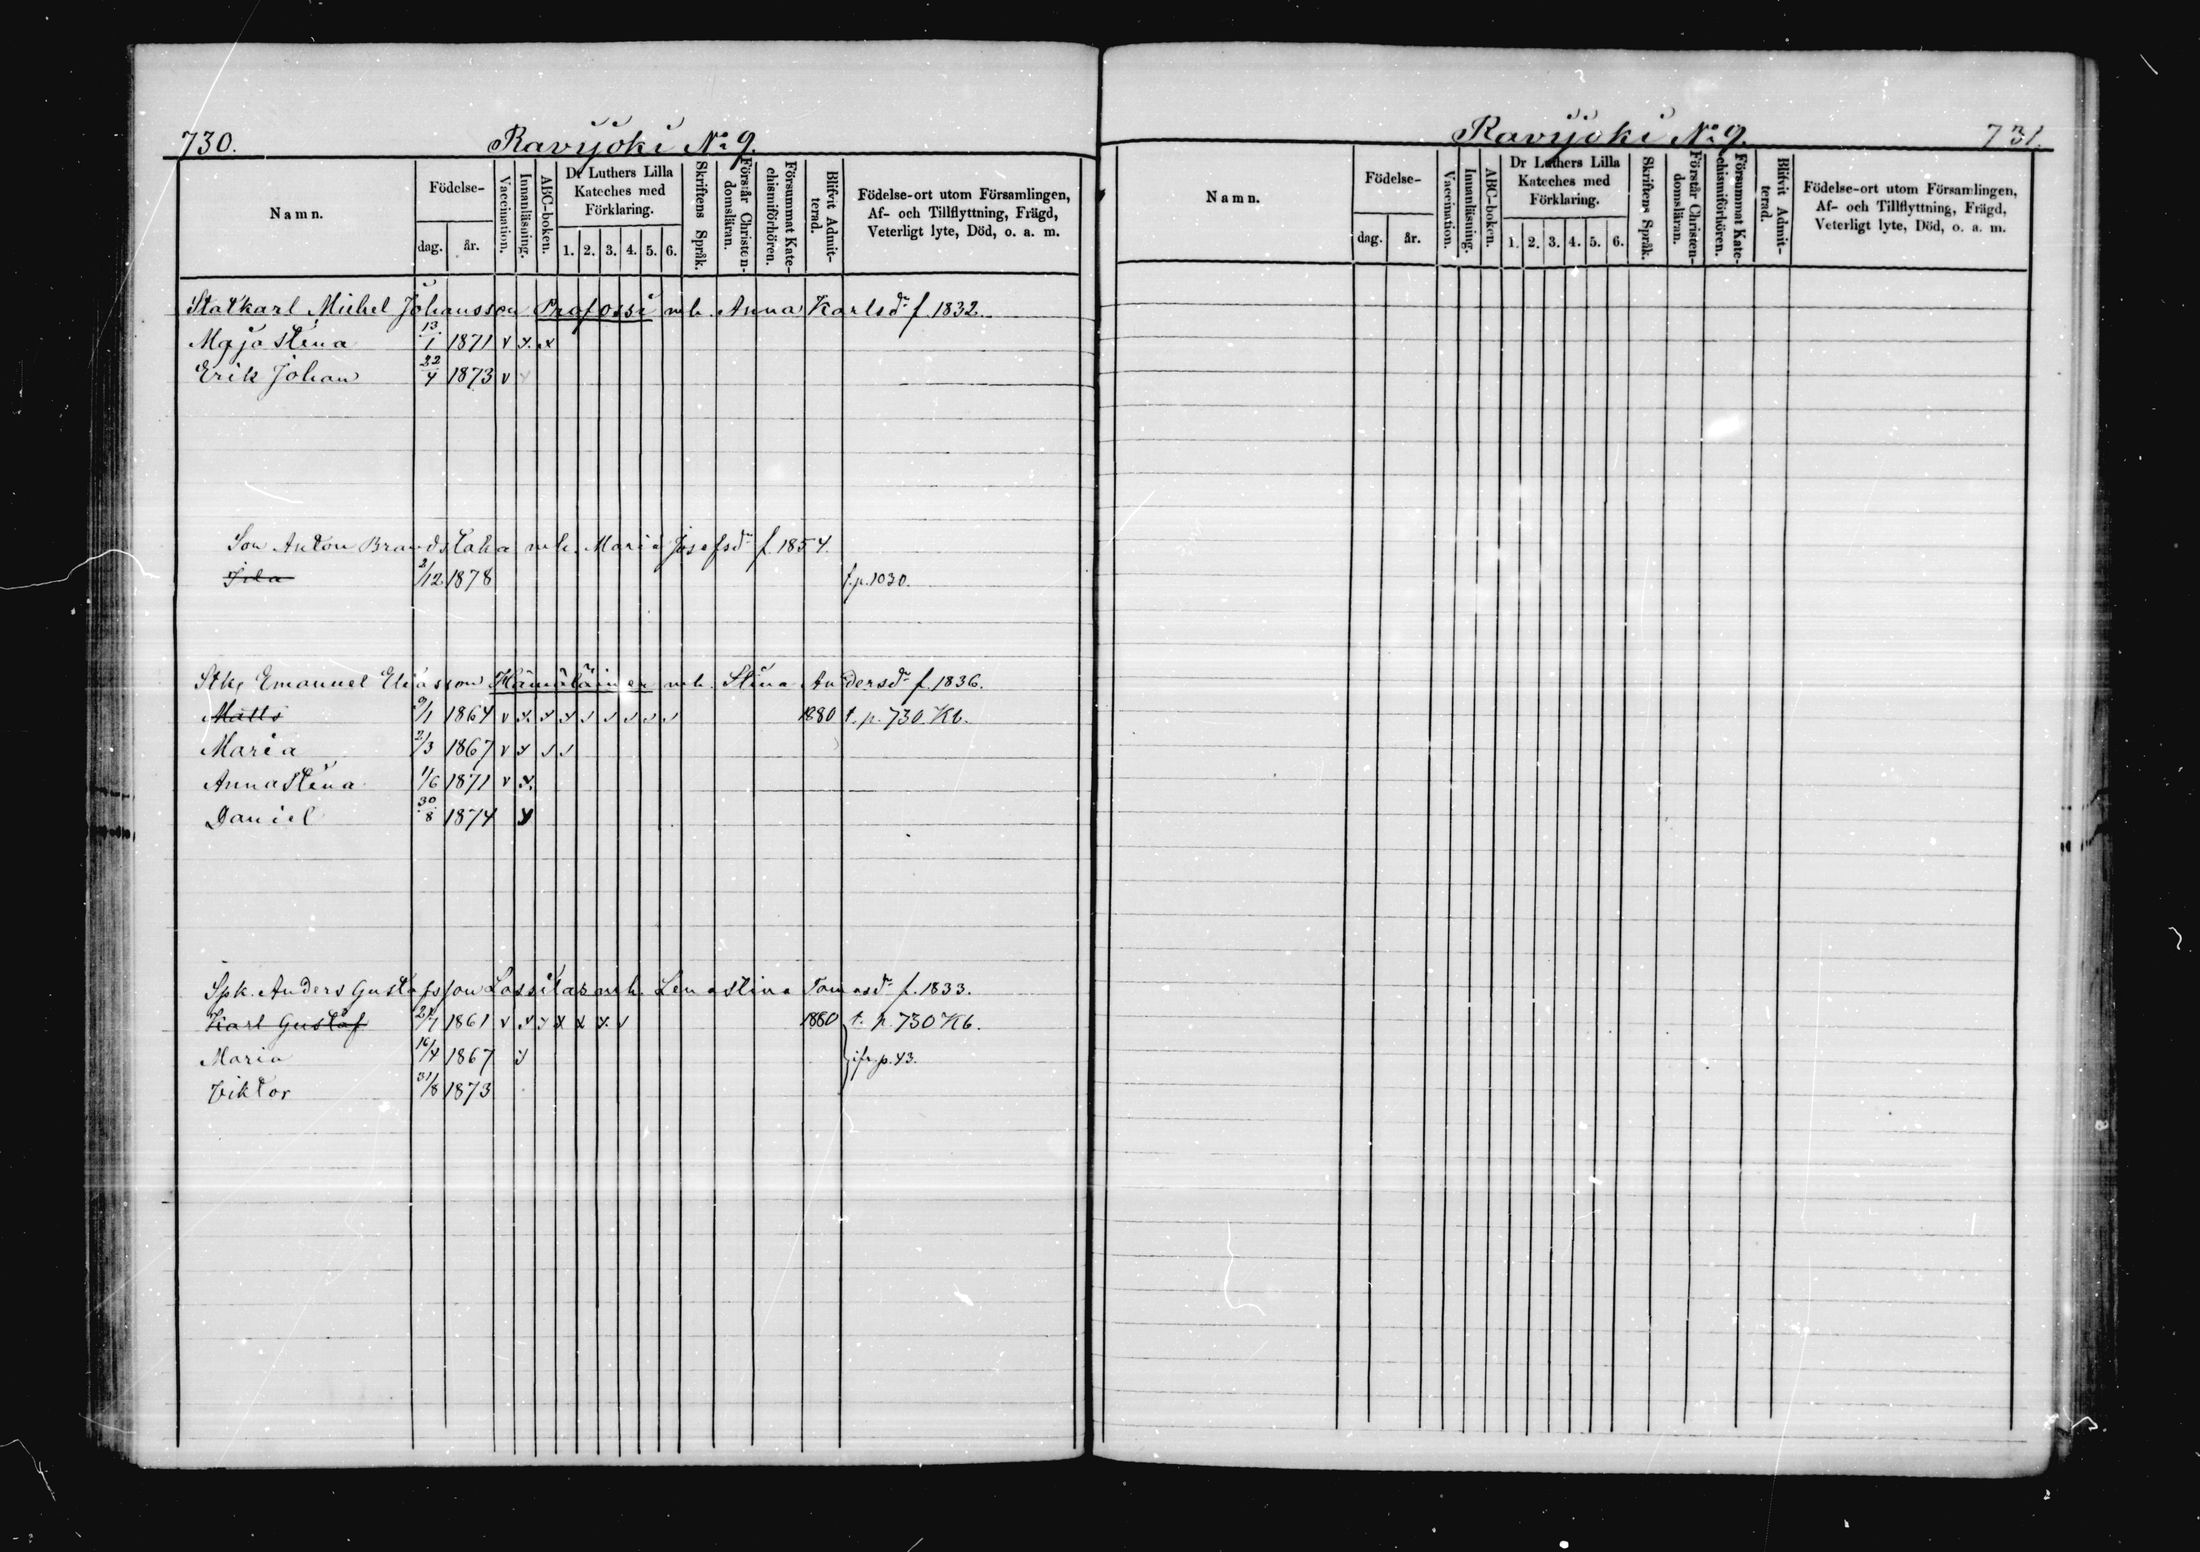 730. Ravijoki No 9.
Namn. Födelse- dag. år. Vaccination. Innanläsning. ABC-boken. Dr Luthers Lilla Kateches med Förklaring. 1. 2. 3. 4. 5. 6. Skriftens Språk. Förstår Christendomsläran. Försummat Katechismiförhören. Blifvit Admitterad. Födelse-ort utom Församlingen, Af- och Tillflyttning, Frägd, Veterligt lyte, Död, o. a. m.
Statkarl Michel Johansson Profossi mh. Anna Karlsdr f. 1832.
Maja Stina 13/1 1871 v x x
Erik Johan 22/4 1873 v
Son Anton Brandstaka mh. Maria Josefsdr f. 1854.
2/12 1878 f. p. 1030.
Stk. Emanuel Eliasson Hämäläinen mh. Stina Andersdr f. 1836.
Matts 9/1 1864 v x x x 1880 t. p. 730. Kb.
Maria 2/3 1867 v x
Anna Stina 1/6 1871 v x
Daniel 30/8 1874 x
Spk. Anders Gustafsson Lassilas mh. Lena Stina Tomasdr f. 1833.
Karl Gustaf 1861 v x x x x x 1880 t. p. 730 Kb.
Maria 16/4 1867 x jfr. p. 43.
Viktor 31/8 1873
Ravijoki No 9. 731.
Namn. Födelse- dag. år. Vaccination. Innanläsning. ABC-boken. Dr Luthers Lilla Kateches med Förklaring. 1. 2. 3. 4. 5. 6. Skriftens Språk. Förstår Christendomsläran. Försummat Katechismiförhören. Blifvit Admitterad. Födelse-ort utom Församlingen, Af- och Tillflyttning, Frägd, Veterligt lyte, Död, o. a. m.